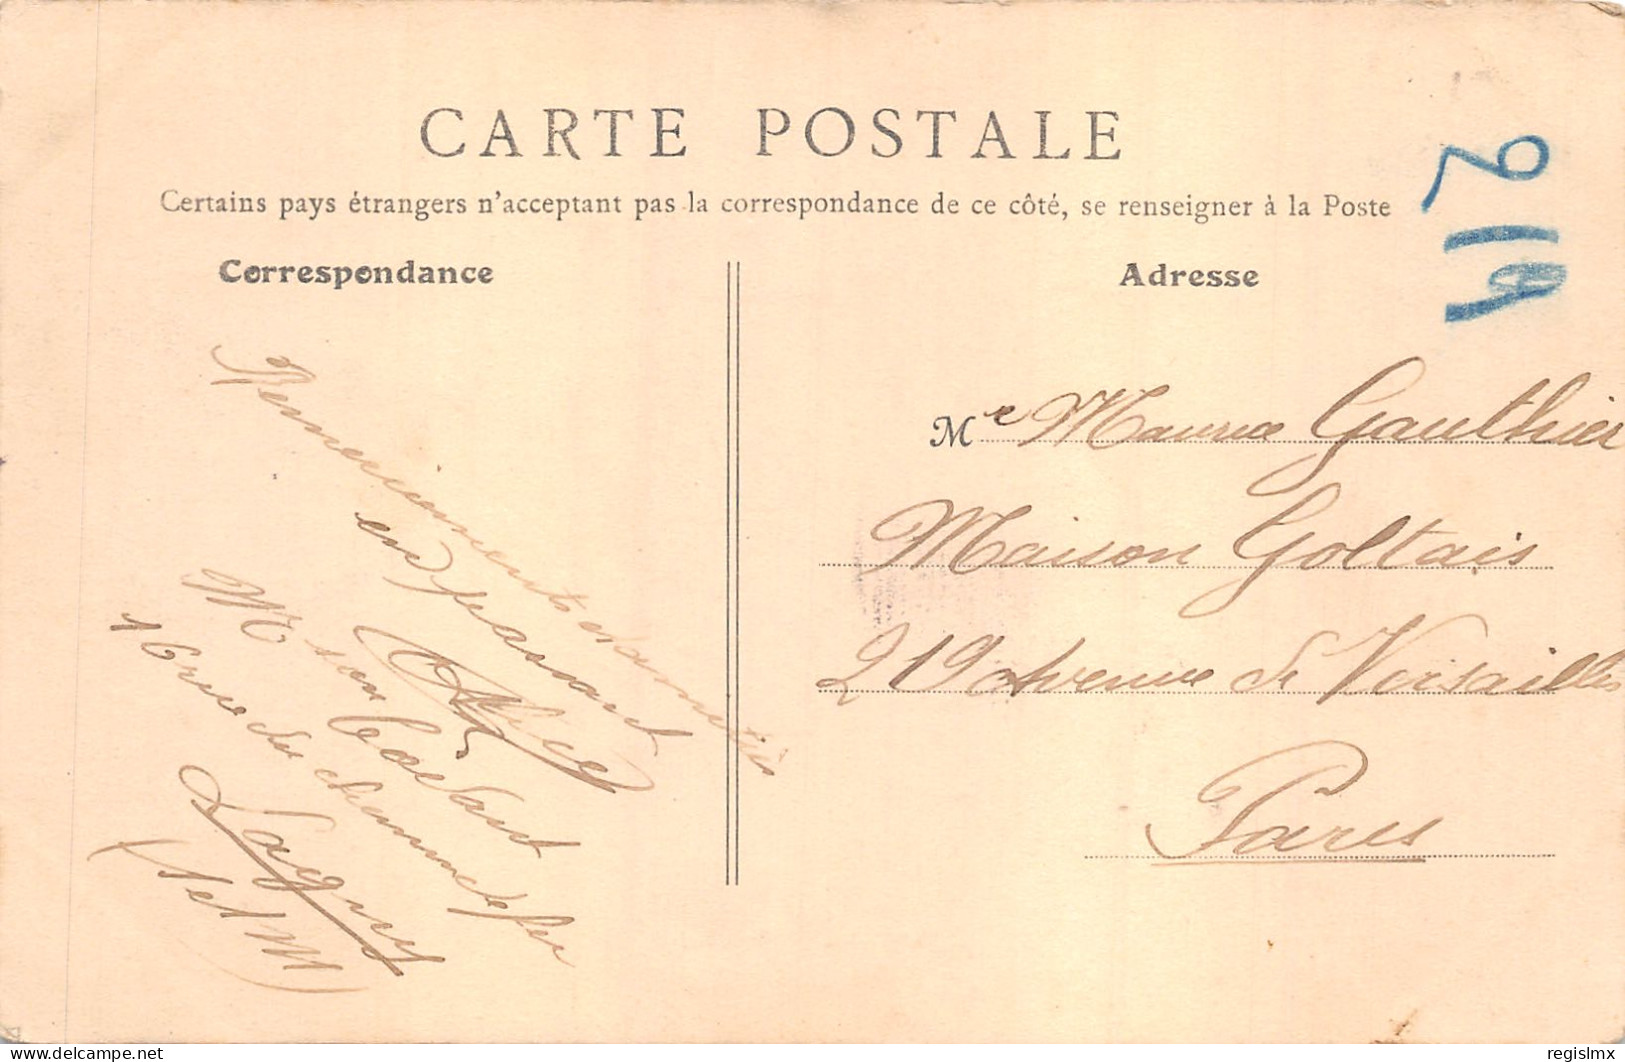 CARTE POSTALE
Certains pays étrangers n'acceptent pas la correspondance de ce côté, se renseigner à la Poste
Correspondance
Adresse
219
Remerciements et amitiés
en passant
M
16 rue du chemin de fer
Lagny
(S et M)
Mr Maurice Gauthier
Maison Goltais
219 Avenue de Versailles
Paris
delcampe.net
regislmx